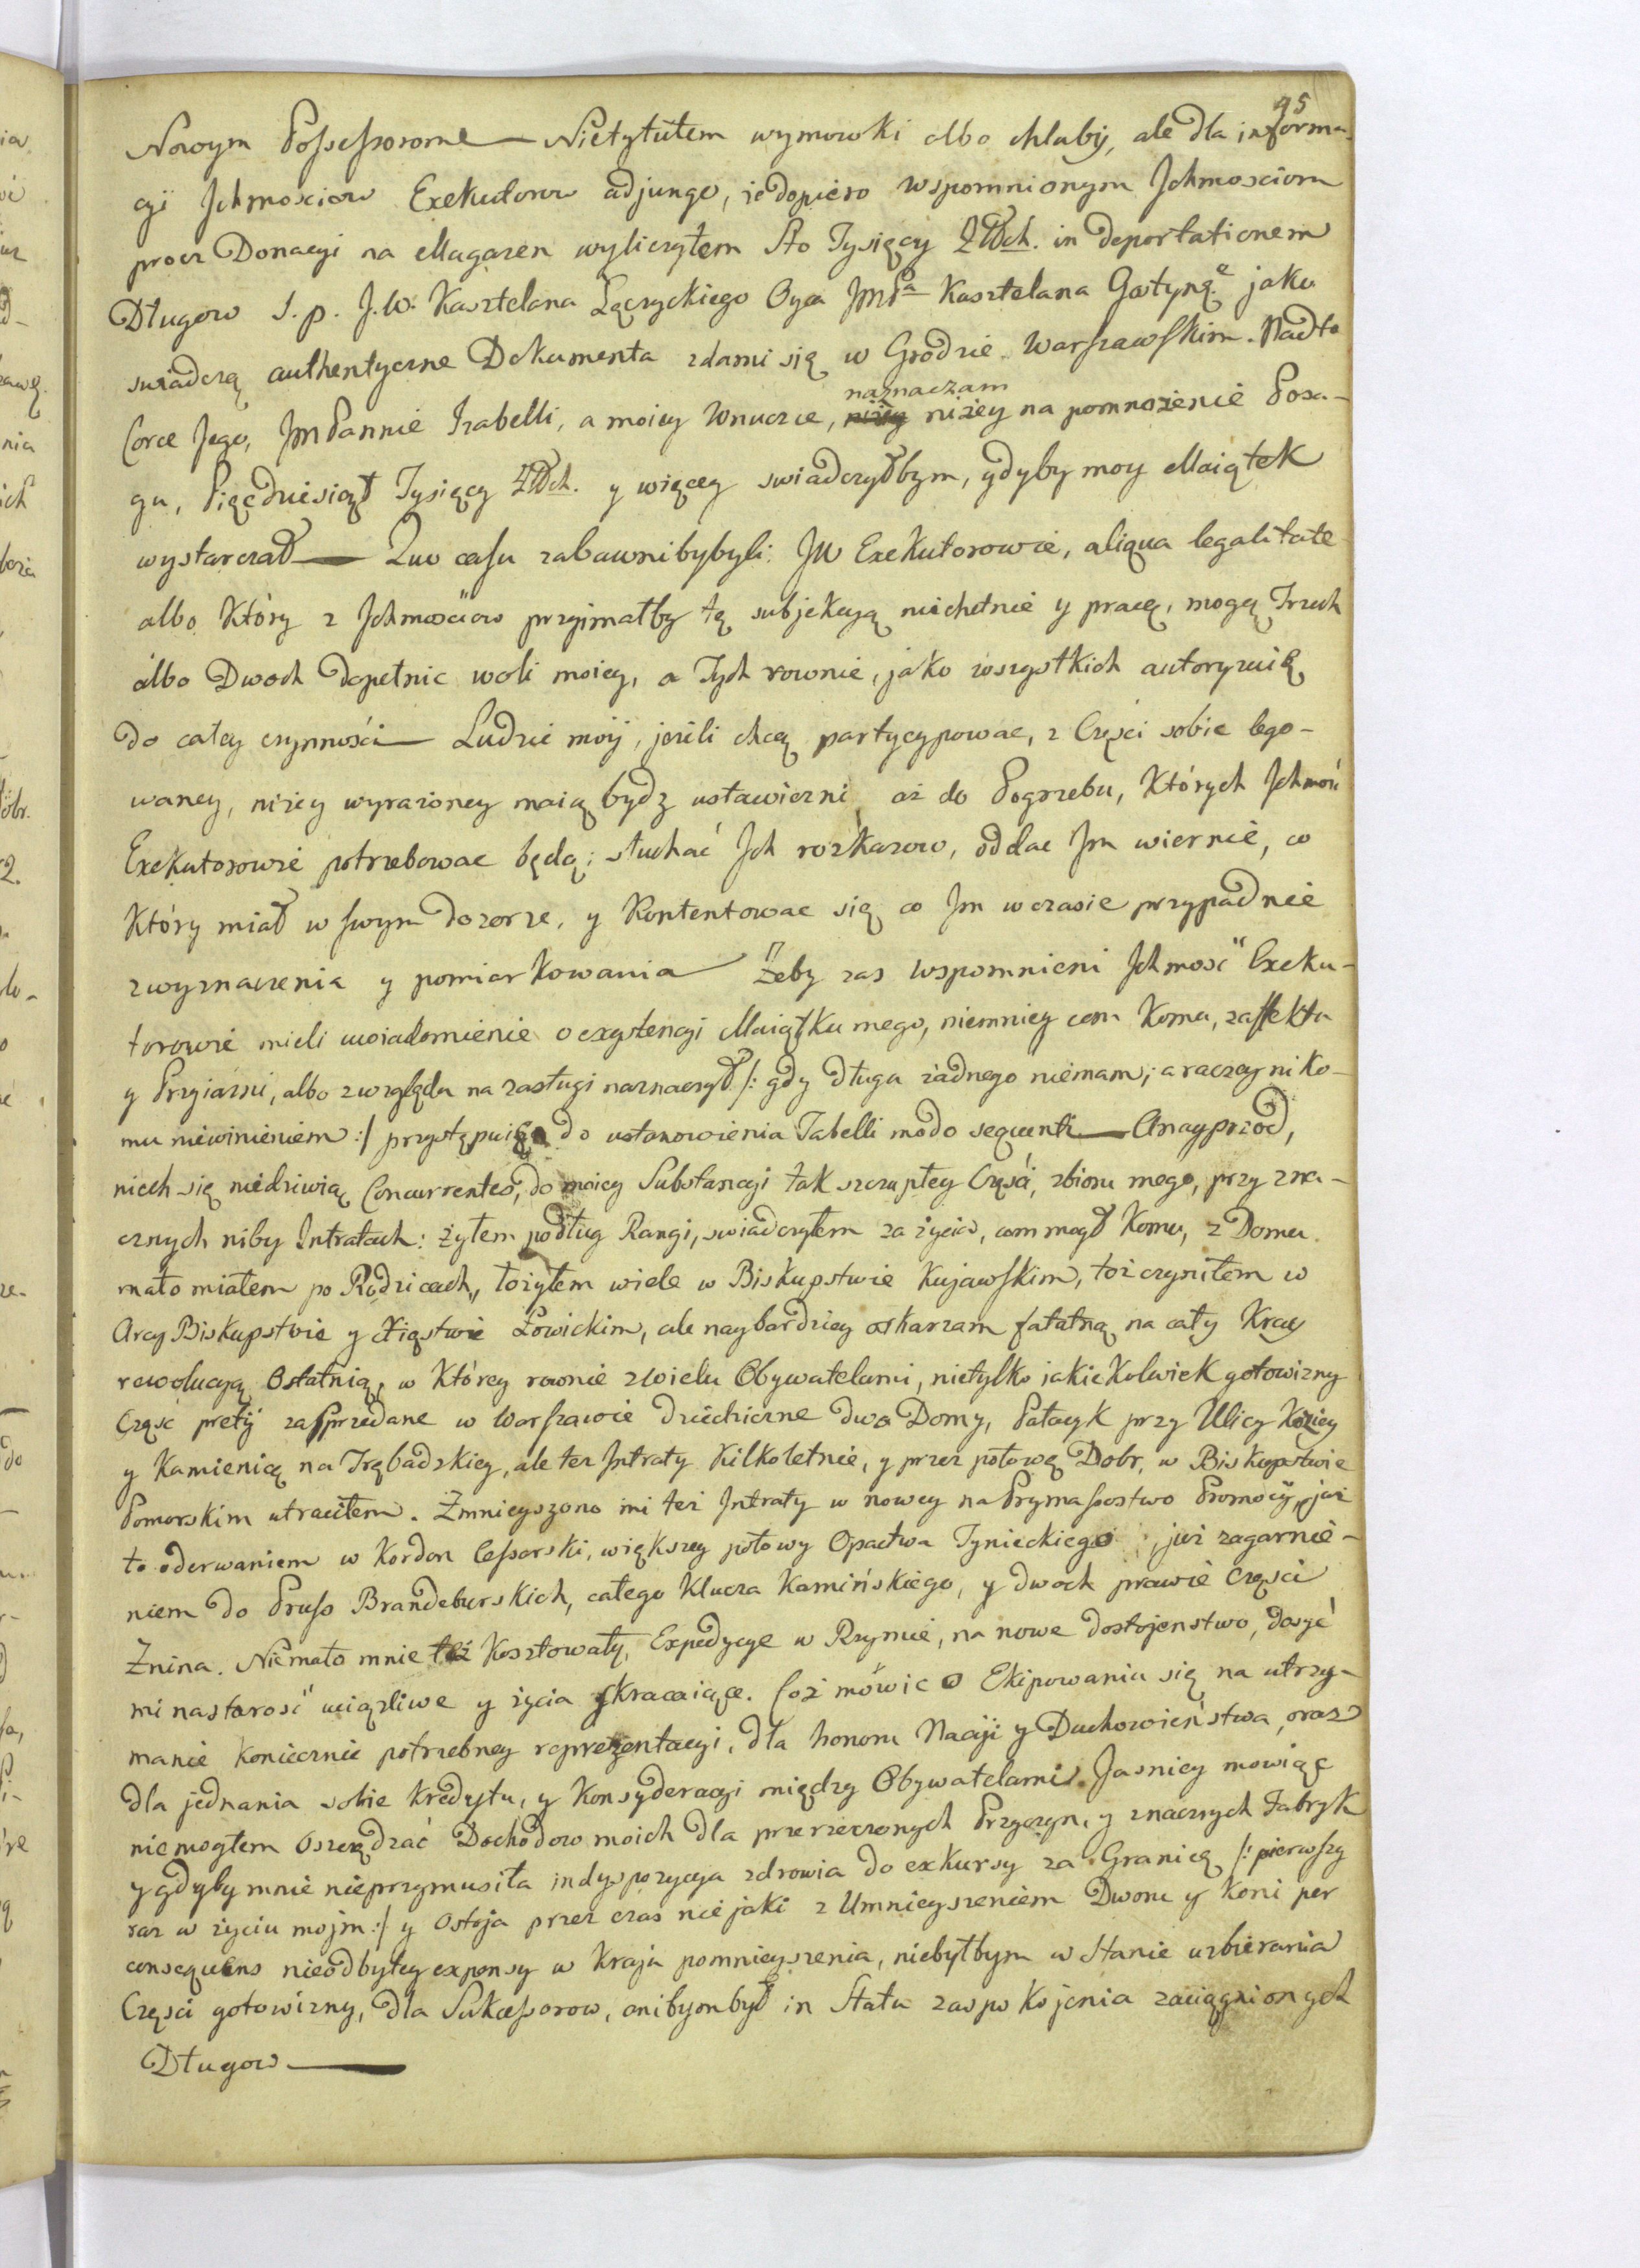 95
Nowym Possessorome — Nietytułem wymowki albo chluby, ale dla informa-
cyi Jchmosciow Exekutorow adjungo, iedopiero wspomnionym Jchmosciom
procz Donacyi na Magazen wyliczyłem Sto Tysięcy Złłch. in deportationem
Długow ś. p. J. W. Kasztelana Łęczyckiego Oyca JmPa Kasztelana Gostynę jako
swiadczą authentyczne Dokumenta zdami się w Grodzie Warszawskim. Nadto
Corce Jego, JmPannie Izabelli, a moiey Wnuczce, naznaczam niżey na pomnożenie Posa-
gu, Pięcdziesiąt Tysięcy Złłch. y więcey swiadczyłbym, gdyby moy Maiątek
wystarczał — Quo casu zabawnibybyli: JW Exekutorowie, aliqua legalitate
albo Który z Jchmosciow przyimałby tę subjekcyą niechetnie y pracę, mogą Trzech
albo Dwoch dopełnic woli moiey, a Tych rownie, jako wszystkich autoryzuię
do całey czynności — Ludzie moij, jeżeli chcą partycypowac, z Częsci sobie lego-
waney, niżey wyrażoney maią bydz ustawiczni aż do Pogrzebu, Których Jchmoć
Exekutorowie potrzebowac będą; słuchać Jch rozkazow, oddac Jm wiernie, co
Który miał w swym dozorze, y Kontentowac się co Jm wczasie przypadnie
zwyznaczenia y pomiarkowania Żeby zas wspomnieni Jchmość Exeku-
torowie mieli uwiadomienie o exystencyi Maiątku mego, niemniey com Komu, zaffektu
y Przyiazni, albo zwzględu na zasługi naznaczył /: gdy długu żadnego niemam; a raczey niko-
mu niewinieniem :/ przystępuię do ustanowienia Tabelli modo sequenti — Anayprzod,
niech się niedziwią Concurrentes, do moiey Substancyi tak szczupłey Części, zbioru mego, przy zna-
cznych niby Intratach: żyłem podług Rangi, swiadczyłem za życia, com mogł Komu, z Domu
mało miałem po Rodzicach, łożyłem wiele w Biskupstwie Kujawskim, toż czyniłem w
Arcy Biskupstwie y Xięstwie Łowickim, ale naybardziey oskarzam fatalną na cały Kray
rewolucyą Ostatnią, w Którey rownie zwielu Obywatelami, nietylko jakieKolwiek gotowizny
Część prety zasprzedane w Warszawie dziedziczne dwa Domy, Pałacyk przy Ulicy Koziey
y Kamienicę na Trębackiey, ale tez Intraty Kilkoletnie, y przez połowę Dobr, w Biskupstwie
Pomorskim utraciłem. Zmnieyszono mi też Intraty w nowey na Prymasostwo Promocij, już
to oderwaniem w Kordon Cesarski, większey połowy Opactwa Tynieckiego, już zagarnie-
niem do Pruss Brandeburskich, całego Klucza Kamińskiego, y dwoch prawie Części
Żnina. Niemało mnie też Kosztowały, Expedycye w Rzymie, na nowe dostojenstwo, dosyć
mi nastarość uciążliwe y życia skracaiące. Coż mówic o Ekipowaniu się na utrzy-
manie Koniecznie potrzebney reprezentacyi, dla honoru Nacij y Duchowieństwa, oraz
dla jednania sobie Kredytu, y Konsyderacyi między Obywatelami. Jasniey mowiąc
niemogłem Oszczędzać Dochodow moich dla przerzeczonych Przyczyn, y znacznych Fabryk
y gdyby mnie nieprzymusiła indyspozycya zdrowia do exkursy za Granicę /: pierwszy
raz w życiu mojm :/ y Ostoja przez czas niejaki z Umnieyszeniem Dworu y Koni per
consequens nieodbyłey expensy w Kraju pomnieyszenia, niebyłbym w Stanie uzbierania
Części gotowizny, dla Sukcessorow, anibyonbył in Statu zaspokojenia zaciągnionych
Długow —